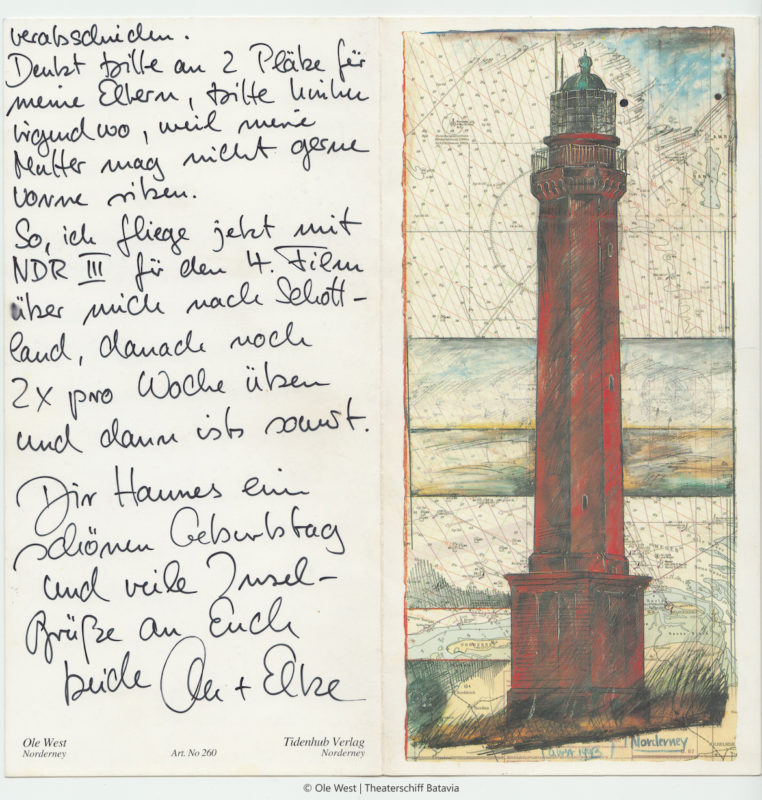 verabschieden.
Denkt bitte an 2 Plätze für
meine Eltern, bitte hinten
irgendwo, weil meine
Mutter mag nicht gerne
vorne sitzen.
So, ich fliege jetzt mit
NDR III für den 4. Film
über mich nach Schott-
land, danach noch
2x pro Woche üben
und dann ists soweit.
Dir Hannes ein
schönen Geburtstag
und viele Insel-
Grüße an Euch
beide Ole + Elke
Ole West
Norderney
Art. No 260
Tidenhub Verlag
Norderney
Norderney
© Ole West | Theaterschiff Batavia